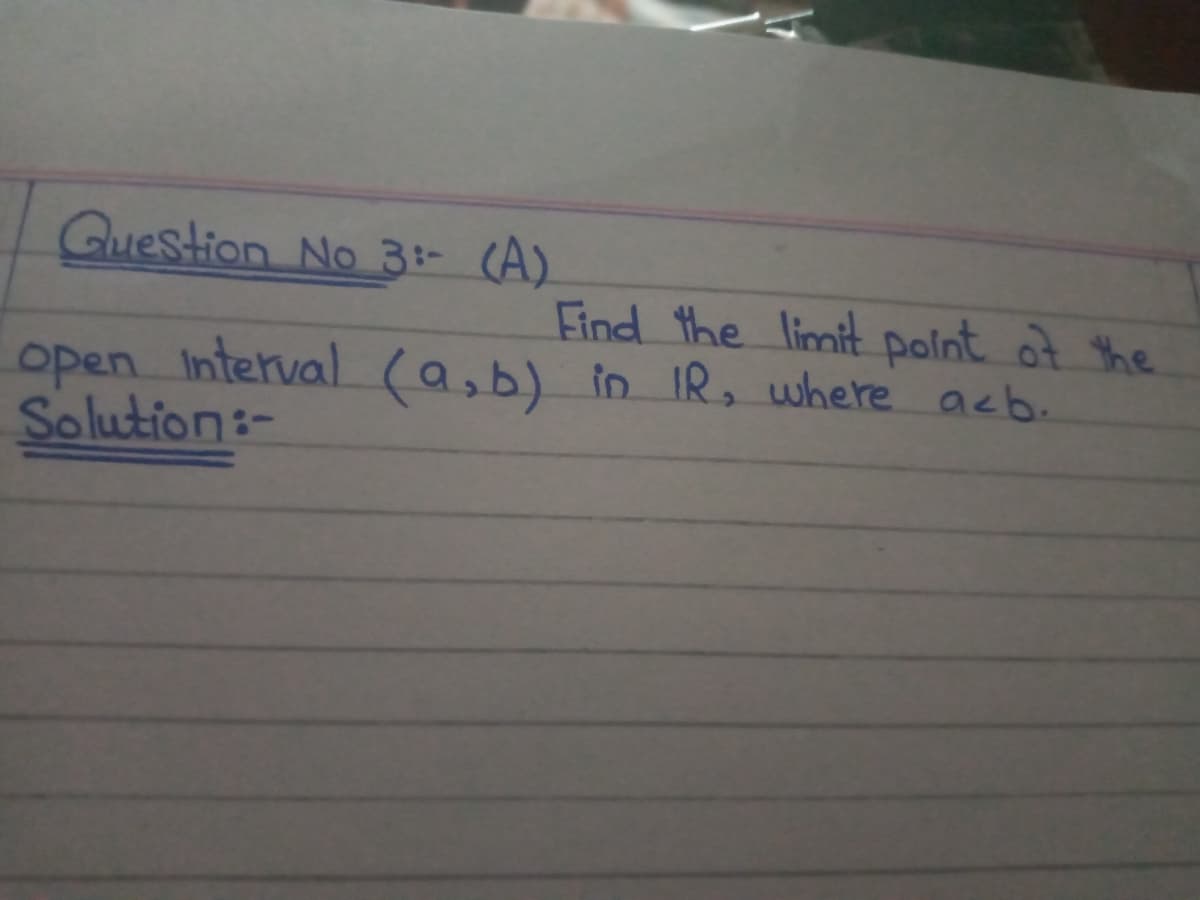 Question No 3:- (A)
Find the limit point of the
open interval (a,b) in IR, where a<b.
Solution:-